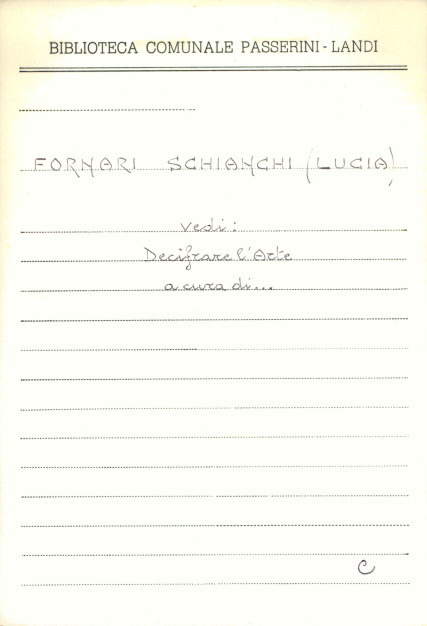 BIBLIOTECA COMUNALE PASSERINI-LANDI
FORNARI SCHIANCHI (LUCIA)
vedi:
Decifrare l'Arte
a cura di...
C